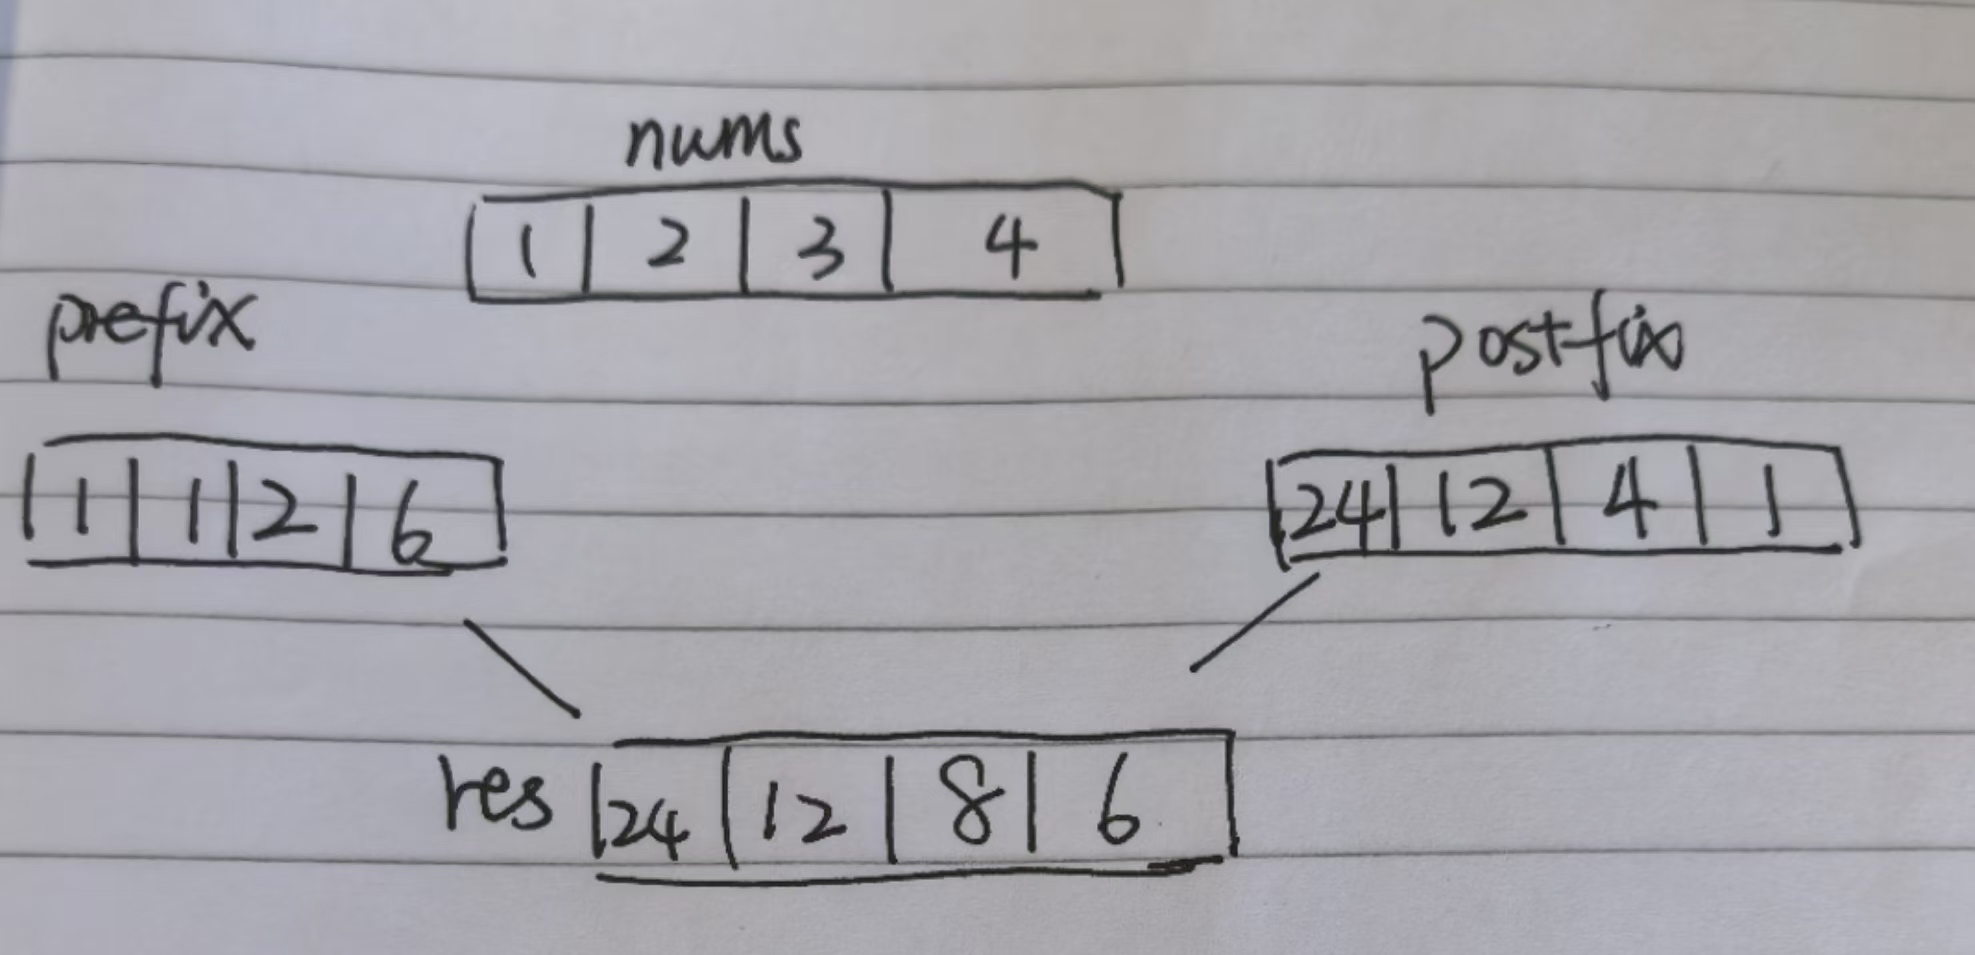 nums
1 2 3 4
prefix
postfix
1 1 2 6
24 12 4 1
res 24 12 8 6